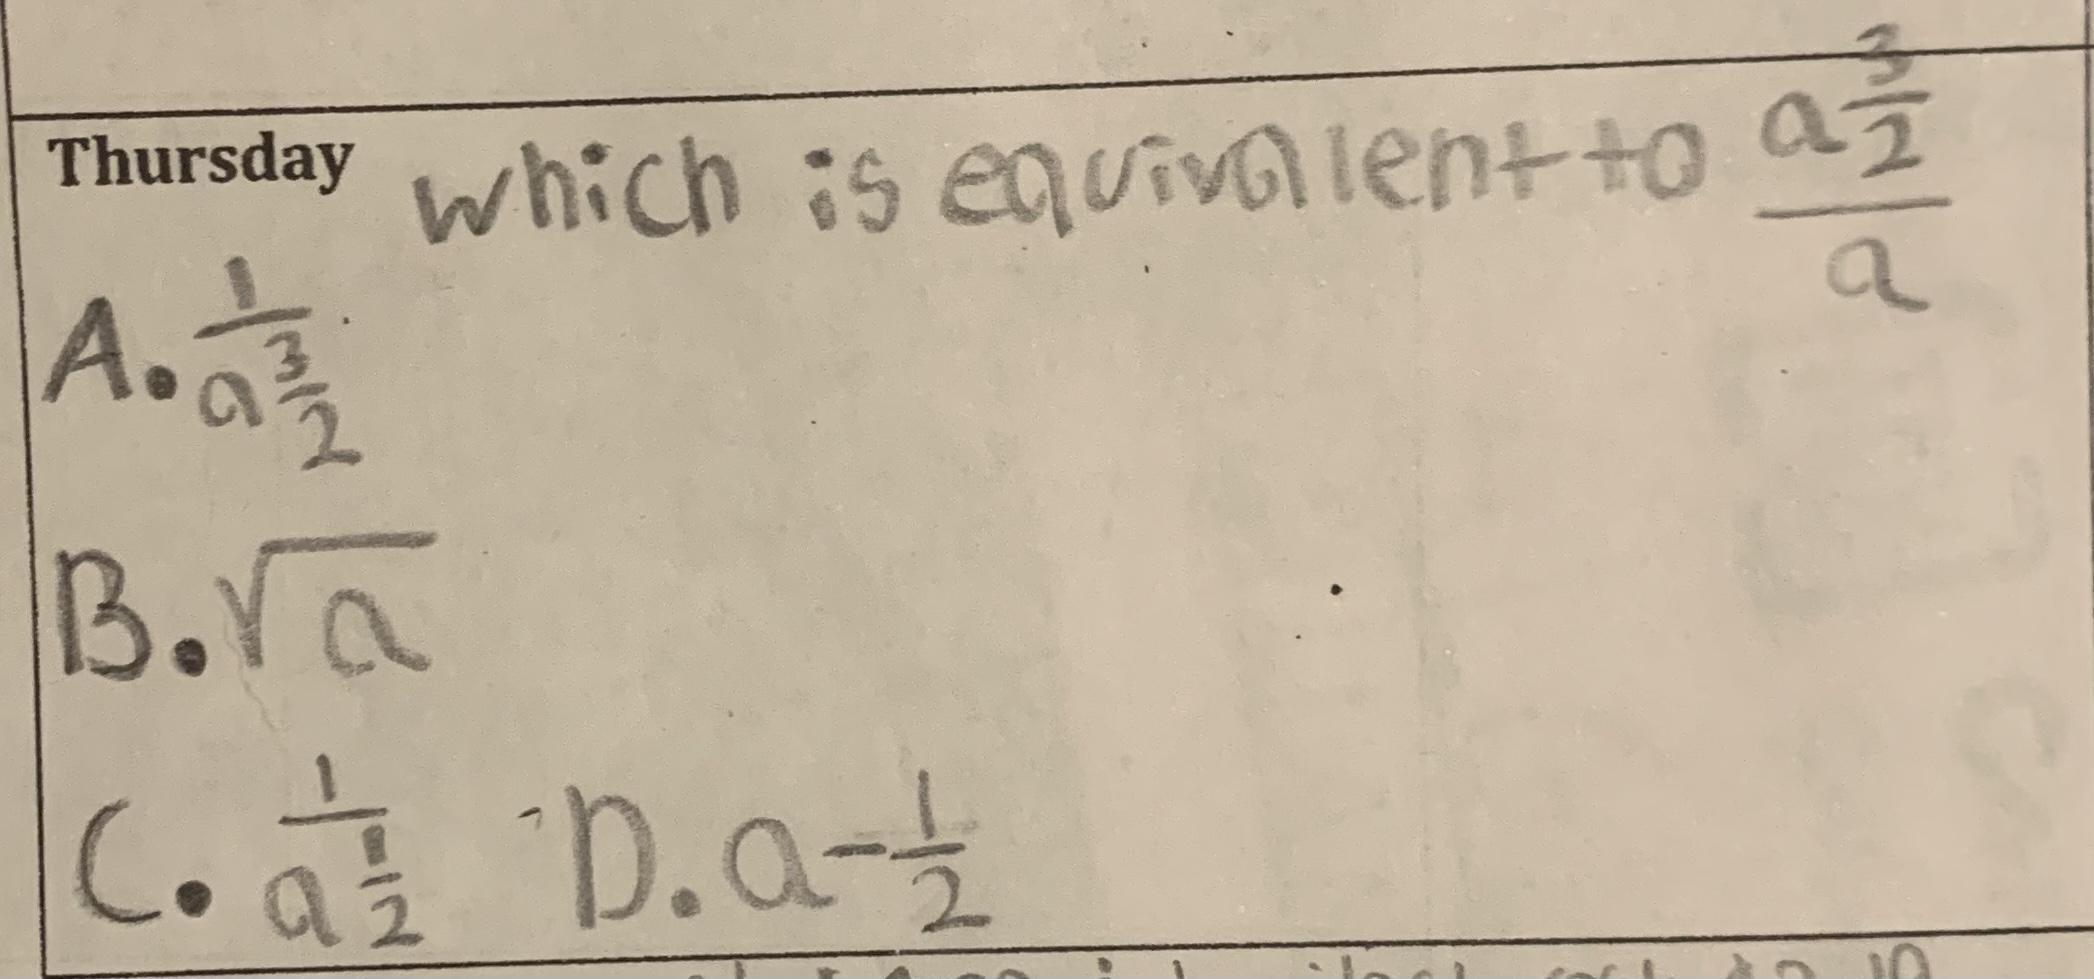 Thursday which is equivalent to a^(3/2)/a
A. 1/a^(3/2)
B. √a
C. 1/a^(1/2) D. a^(-1/2)